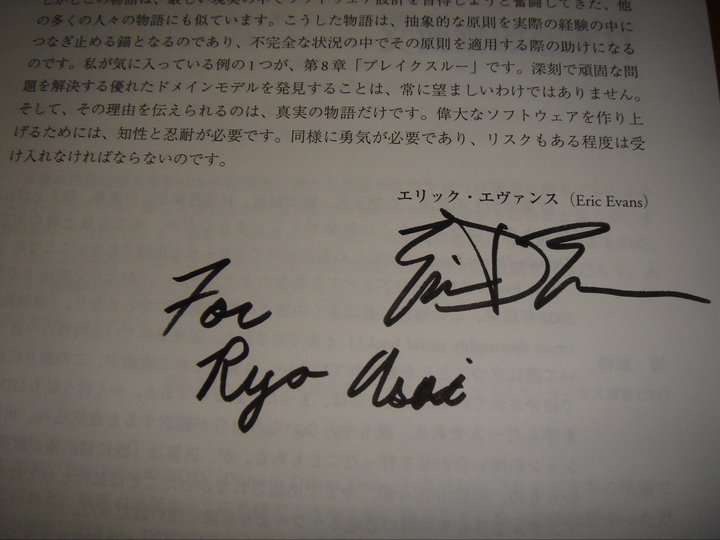 の多くの人々の物語にも似ています。こうした物語は、抽象的な原則を実際の経験の中に
つなぎ止める錨となるのであり、不完全な状況の中でその原則を適用する際の助けになる
のです。私が気に入っている例の1つが、第8章「ブレイクスルー」です。深刻で頑固な問
題を解決する優れたドメインモデルを発見することは、常に望ましいわけではありません。
そして、その理由を伝えられるのは、真実の物語だけです。偉大なソフトウェアを作り上
げるためには、知性と忍耐が必要です。同様に勇気が必要であり、リスクもある程度は受
け入れなければならないのです。
エリック・エヴァンス（Eric Evans）
For
Ryo Asai